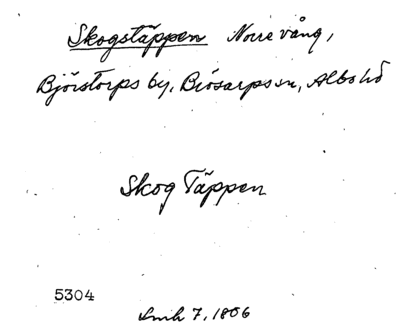 Skogstäppen Norrevång,
Björstorps by, Brösarps sn, Albo hd
Skog Täppen
5304
Lmh 7, 1806